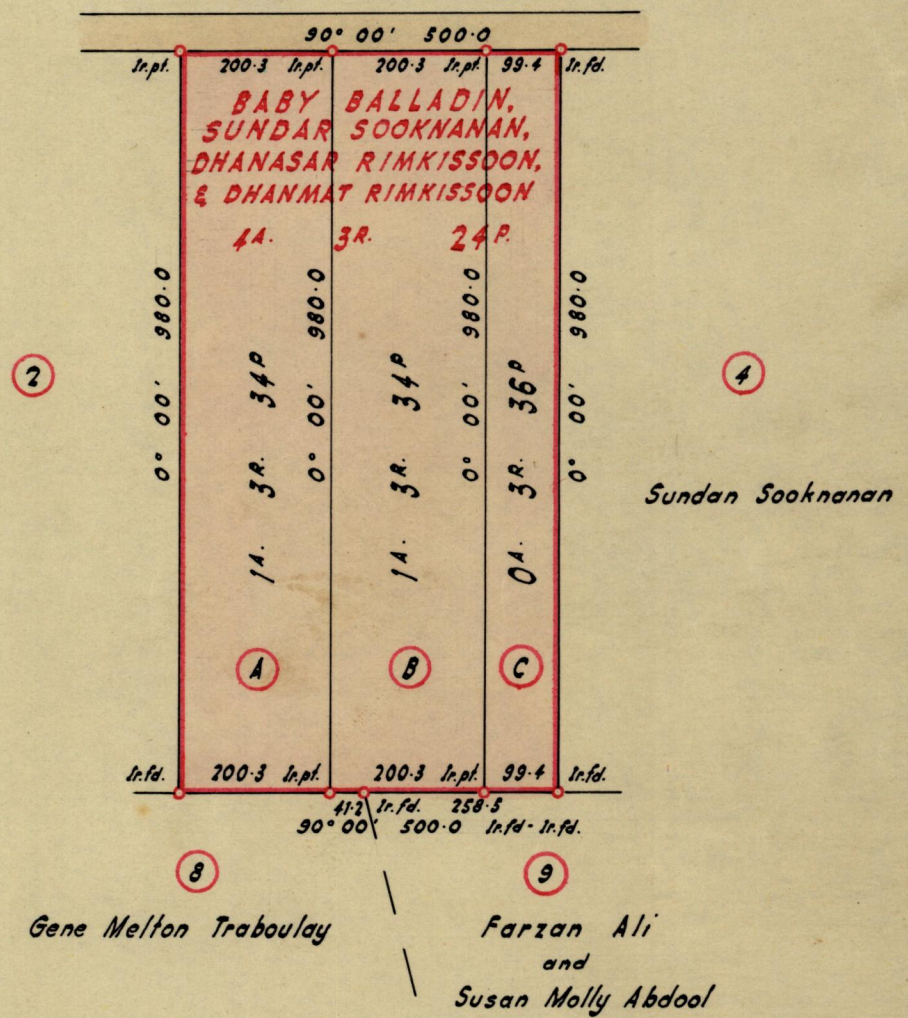 90° 00' 500·0
Ir.pt. 200·3 Ir.pt. 200·3 Ir.pt. 99·4 Ir.fd.
BABY BALLADIN,
SUNDAR SOOKNANAN,
DHANASAR RIMKISSOON,
& DHANMAT RIMKISSOON
4A. 3R. 24P.
0° 00' 980·0
1A. 3R. 34P
0° 00' 980·0
1A. 3R. 34P
0° 00' 980·0
0A. 3R. 36P
0° 00' 980·0
2
4
Sundan Sooknanan
A
B
C
Ir.fd. 200·3 Ir.pt. 200·3 Ir.pt. 99·4 Ir.fd.
41·2 Ir.fd. 258·5
90° 00' 500·0 Ir.fd - Ir.fd.
8
9
Gene Melton Traboulay
Farzan Ali
and
Susan Molly Abdool